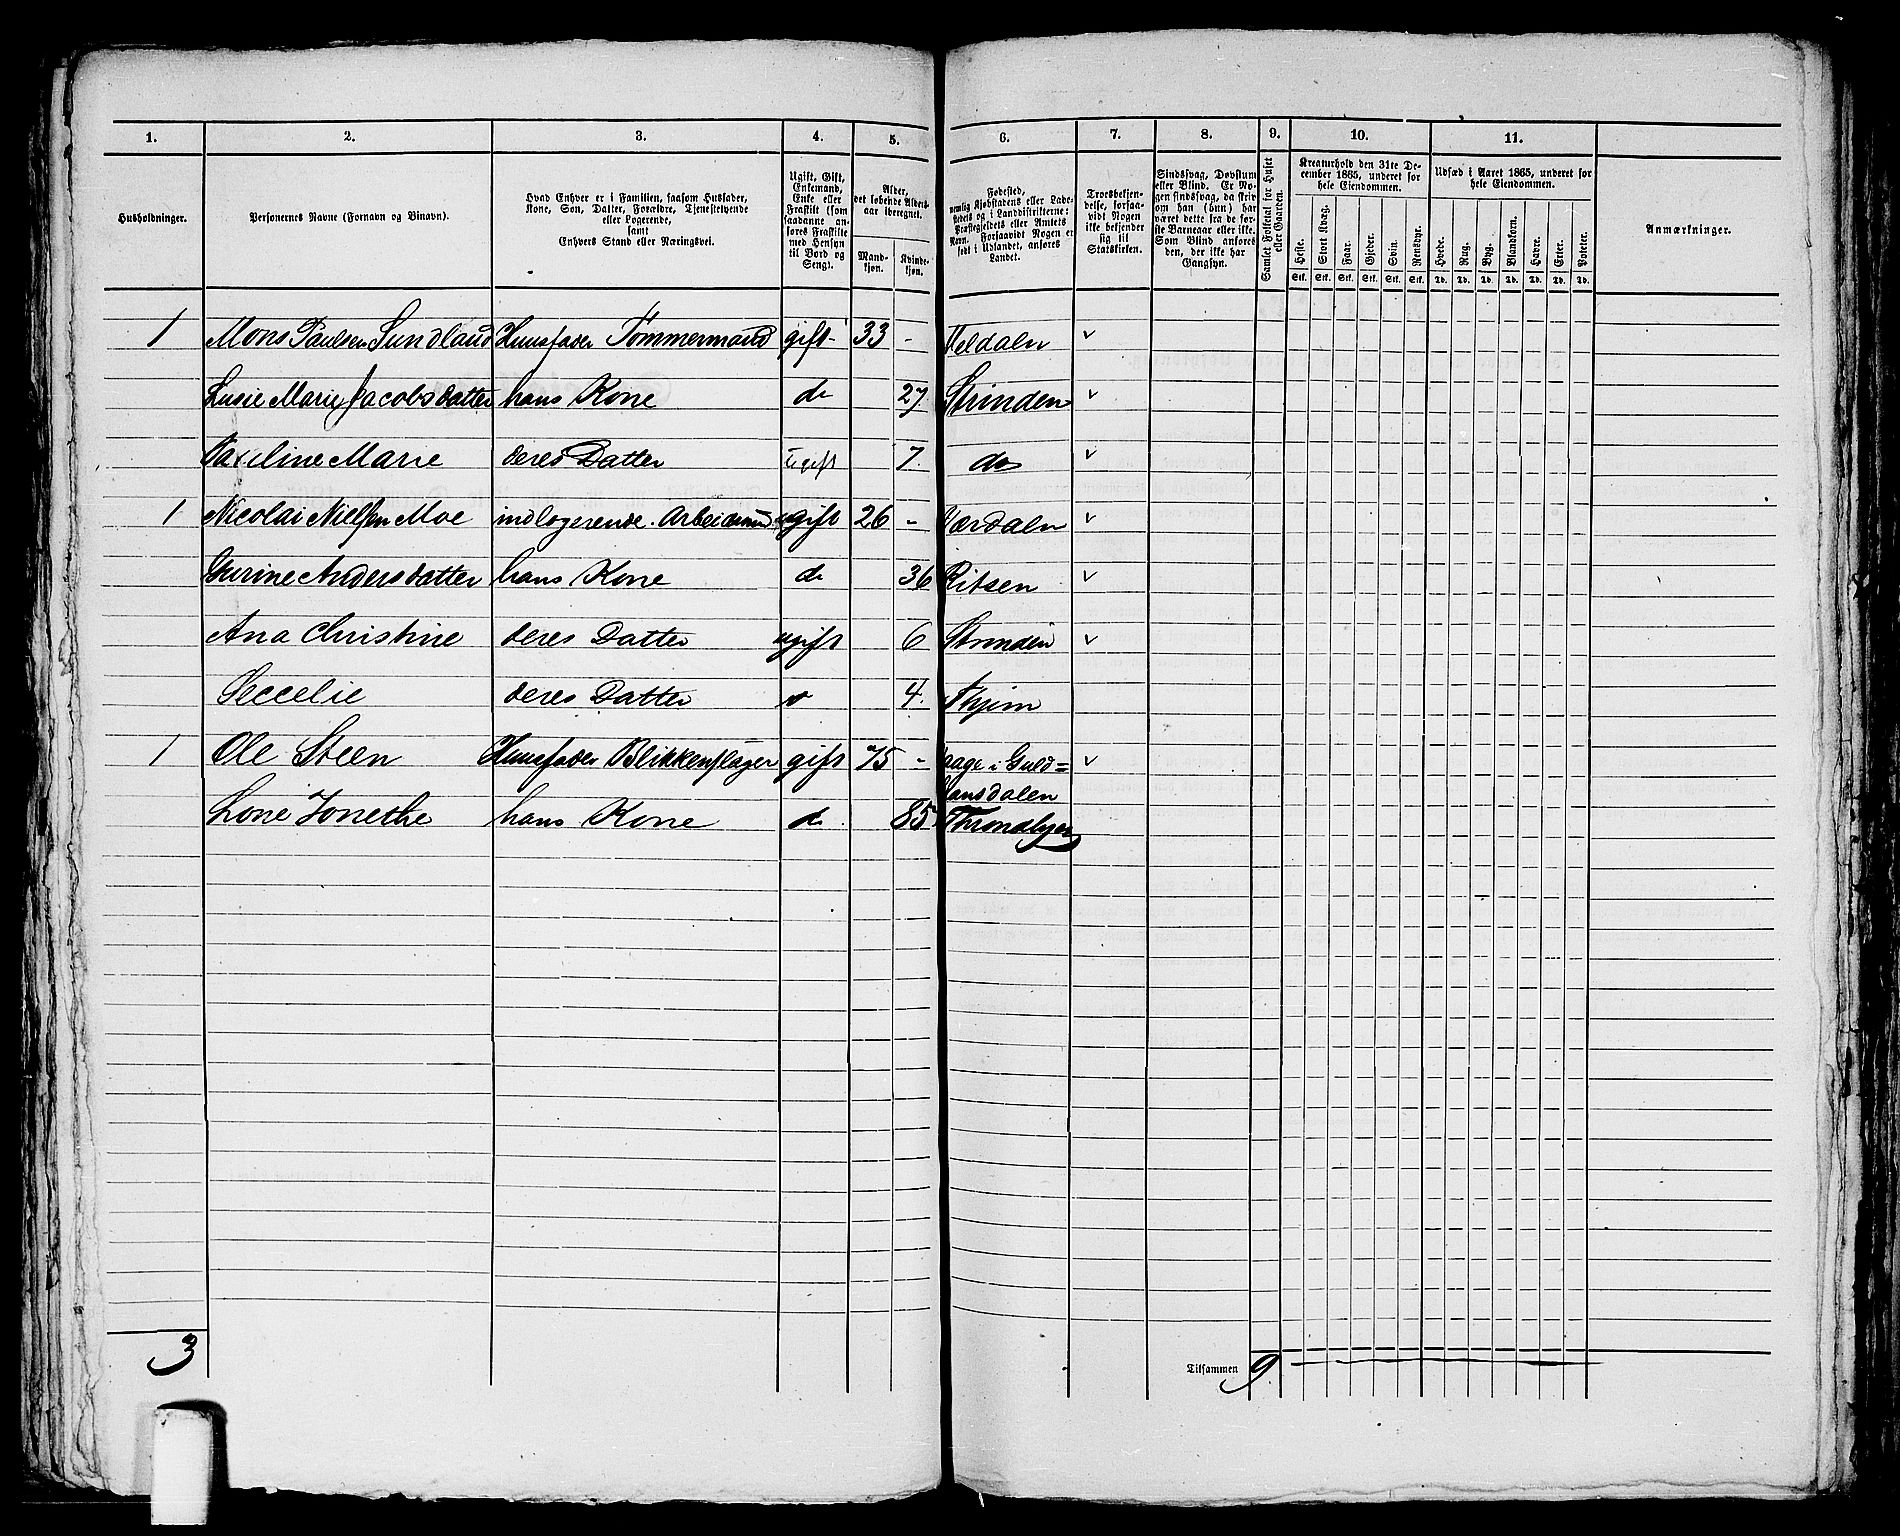 1. 2. 3. 4. 5. 6. 7. 8. 9. 10. 11.
Husholdninger.
Personernes Navne (Fornavn og Binavn).
Hvad Enhver er i Familien, saasom Husfader,
Kone, Søn, Datter, Forældre, Tjenestetyende
eller Logerende,
samt
Enhvers Stand eller Næringsvei.
Ugift, Gift,
Enkemand,
Enke eller
Fraskilt (som
saadanne an-
føres Fraskilte
med Hensyn
til Bord og
Seng).
Alder,
det løbende Alders-
aar iberegnet.
Mand-
kjøn.
Kvinde-
kjøn.
Fødested,
nemlig Kjøbstadens eller Lade-
stedets og i Landdistrikterne:
Præstegjeldets eller Amtets
Navn. Forsaavidt Nogen er
født i Udlandet, anføres
Landet.
Troesbekjen-
delse, forsaa-
vidt Nogen
ikke bekjender
sig til
Statskirken.
Sindssvag, Døvstum
eller Blind. Er No-
gen sindssvag, da skriv
om han (hun) har
været dette fra de før-
ste Barneaar eller ikke.
Som Blind anføres
den, der ikke har
Gangsyn.
Samlet Folketal for Huset
eller Gaarden.
Kreaturhold den 31te De-
cember 1865, underet for
hele Eiendommen.
Heste. Stort Kvæg. Faar. Gjeder. Svin. Rensdyr.
Stk. Stk. Stk. Stk. Stk. Stk.
Udsæd i Aaret 1865, underet for
hele Eiendommen.
Hvede. Rug. Byg. Blandkorn. Havre. Erter. Poteter.
Td. Td. Td. Td. Td. Td. Td.
Anmærkninger.
1 Mons Paulsen Sundland Huusfader Tømmermand gift 33 - Meldalen v
Lusie Marie Jacobsdatter hans Kone do 27 Strinden v
Marie deres Datter ugift 7. do v
1 Nicolai Nielsen Moe indlogerende. Arbeidsmd gift 26 - Værdalen v
Gurine Andersdatter hans Kone do 36 Ritsen v
Ana Christine deres Datter ugift 6 Strinden v
Seccelie deres Datter 4.
1 Ole Steen Huusfader Blikkenslager gift 75 - Vaage i Guld= v
bransdalen
Lone Jonethe hans Kone do 85 Throndhjem
3
Tilsammen 9.